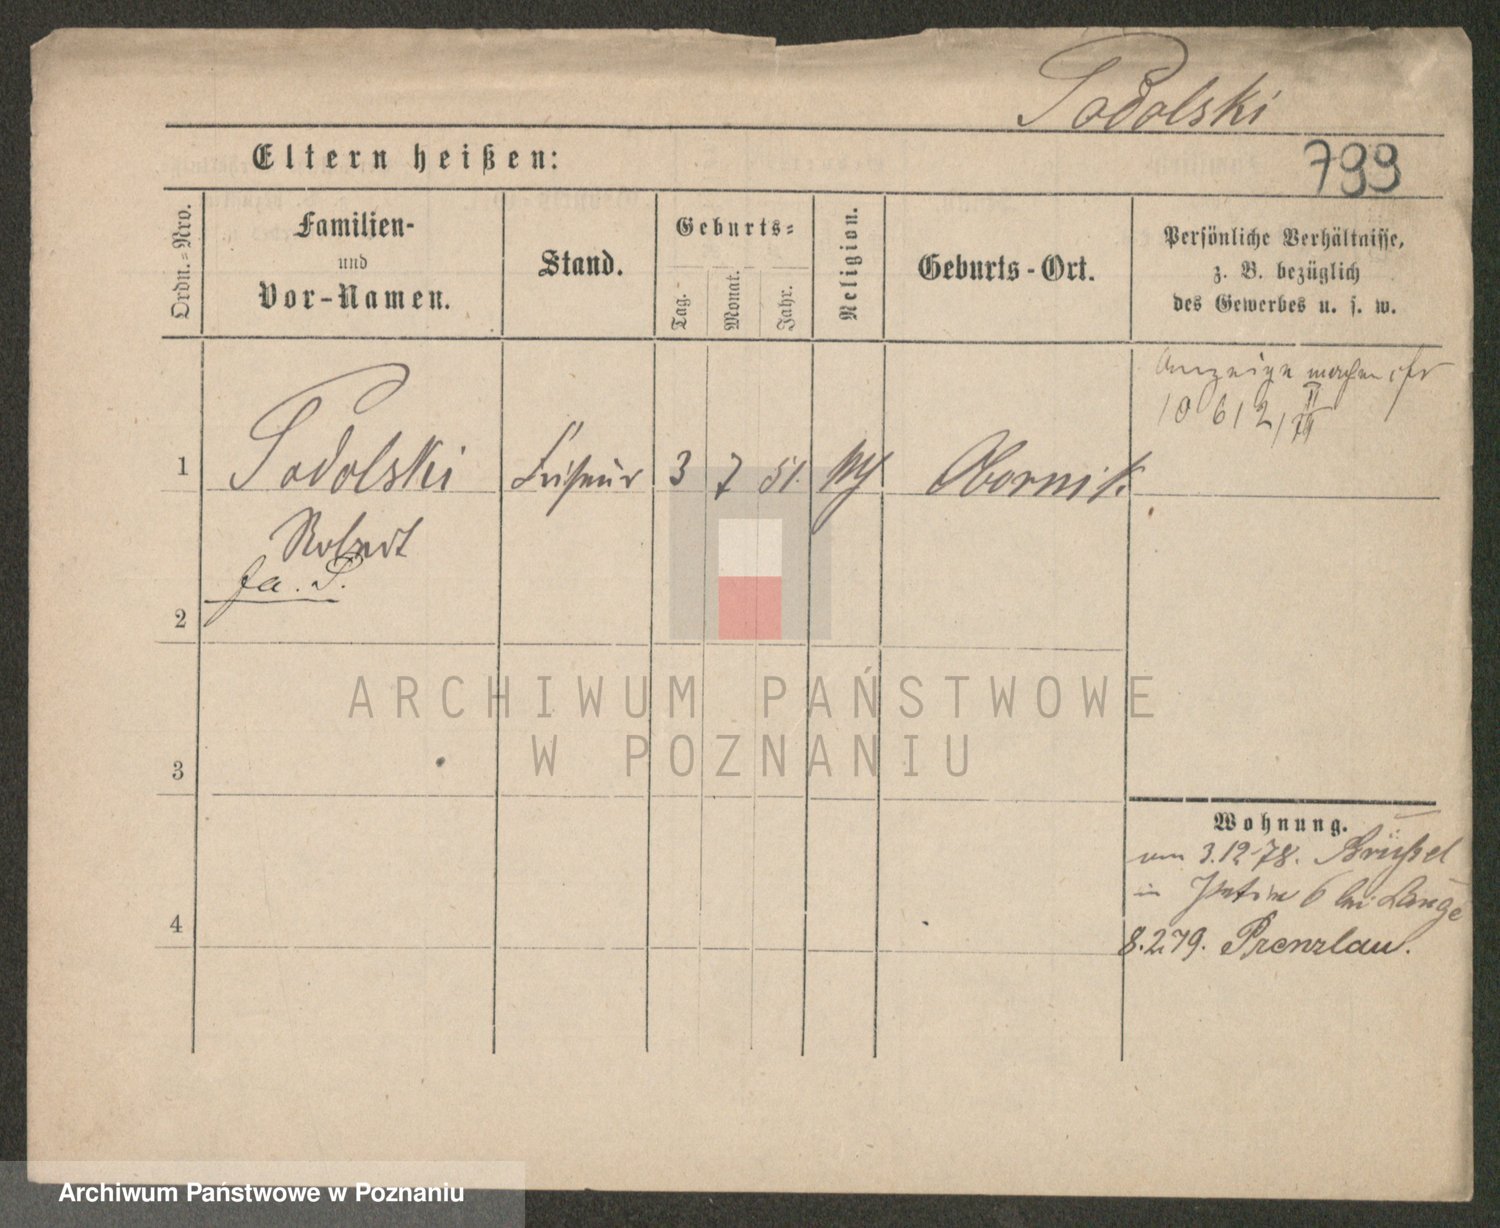 Podolski
Eltern heißen:
799
Ordn.-Nro.
Familien-
und
Vor-Namen.
Stand.
Geburts-
Tag.
Monat.
Jahr.
Religion.
Geburts-Ort.
Persönliche Verhältnisse,
z. B. bezüglich
des Gewerbes u. s. w.
Anzeige machen cfr
10612/
II
79
1
Podolski
Friseur
3
7
51.
Obornik
Robert
fa. P.
2
3
4
Wohnung.
3.12.78. Brüssel
in 6 bei Lange
8.2.79. Prenzlau.
ARCHIWUM PAŃSTWOWE
W POZNANIU
Archiwum Państwowe w Poznaniu